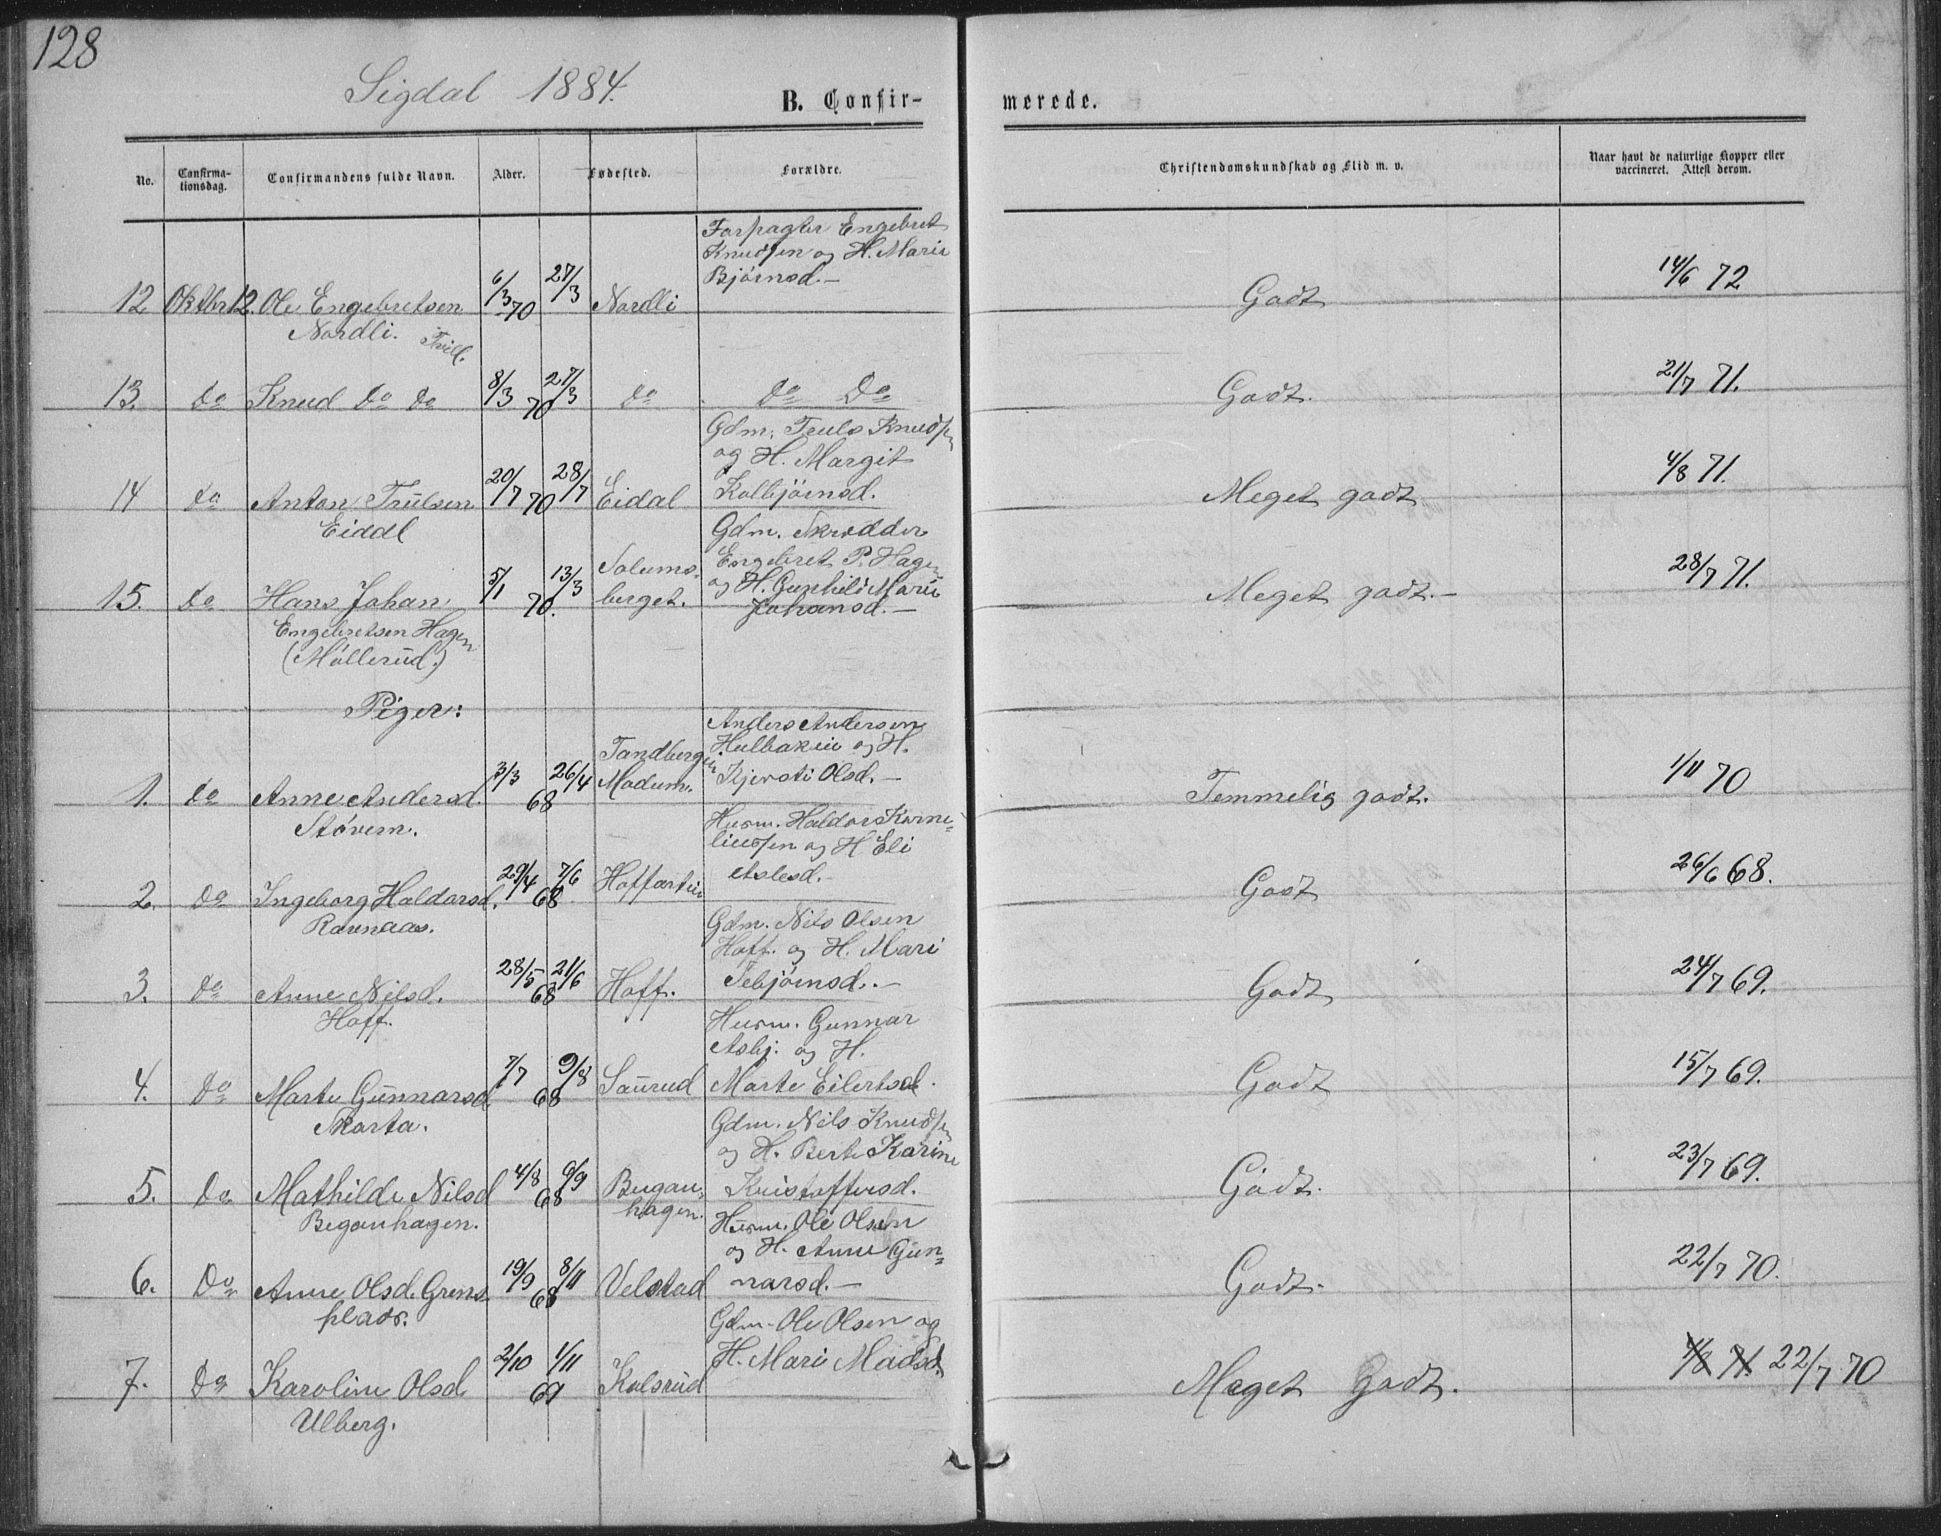 128
Sigdal 1884.
B. Confir-
merede.
No.
Confirma-
tionsdag.
Confirmandens fulde Navn.
Alder.
Fødested.
Forældre.
Christendomskundskab og Flid m. v.
Naar havt de naturlige Kopper eller
vaccineret. Attest derom.
Forpagter Engebret
Knudsen og H. Marie
Bjørnsd.-
12 Oktbr 12. Ole Engebretsen 6/3 70 27/3 Nordli Godt 14/6 72
Nordli. Tvill.
13. do Knud do do 8/3 70 27/3 do do Do Godt. 21/7 71.
Gdm. Truls Knudsen
og H. Margit
14 do Anton Trulsen 20/7 70 28/7 Eidal Kolbjørnsd. Meget godt 4/8 71.
Eidal
Gdm. Skrædder
Engebret P. Hagen
Solums-
og H. Gunhild Marie
15. do Hans Johan 5/1 70. 13/3 berget. Johansd.- Meget godt.- 28/7 71.
Engebretsen Hagen
(Møllerud.)
Piger:
Anders Andersen
Hulbakeie og H.
Tandbergeie
1. do Anne Andersd. 3/3 68 26/4 Modum. Kjersti Olsd.- Temmelig godt. 1/11 70
Støvern.
Husm. Haldor Korne-
liussen og H Eli
2. do Ingeborg Haldorsd. 29/4 68 7/6 Hoffartei Aslesd.- Godt 26/6 68.
Ravnaas.
Gdm. Nils Olsen
Hoff. og H. Mari
3. do Anne Nilsd. 28/5 68 21/6 Hoff. Tebjørnsd.- Godt 24/7 69.
Hoff.
Husm. Gunnar
Asbj. og H.
4. do Marte Gunnarsd 7/7 68 9/8 Saurud Marte Eilertsd. Godt 15/7 69.
Skarta.
Gdm. Nils Knudsen
og H. Berte Karine
5. do Mathilde Nilsd 4/8 68 9/9 Began- Kristoffersd. Godt. 23/7 69.
Beganhagen. hagen.
Husm. Ole Olsen
og H. Anne Gun-
6. Do Anne Olsd. Grens- 19/9 68 8/11 Velstad narsd.- Godt. 22/7 70.
plads.
Gdm. Ole Olsen og
H. Mari Madsd.
7. Do Karoline Olsd 2/10 69 1/11 Kolsrud Meget Godt. 4/8 71. 22/7 70
Ulberg.